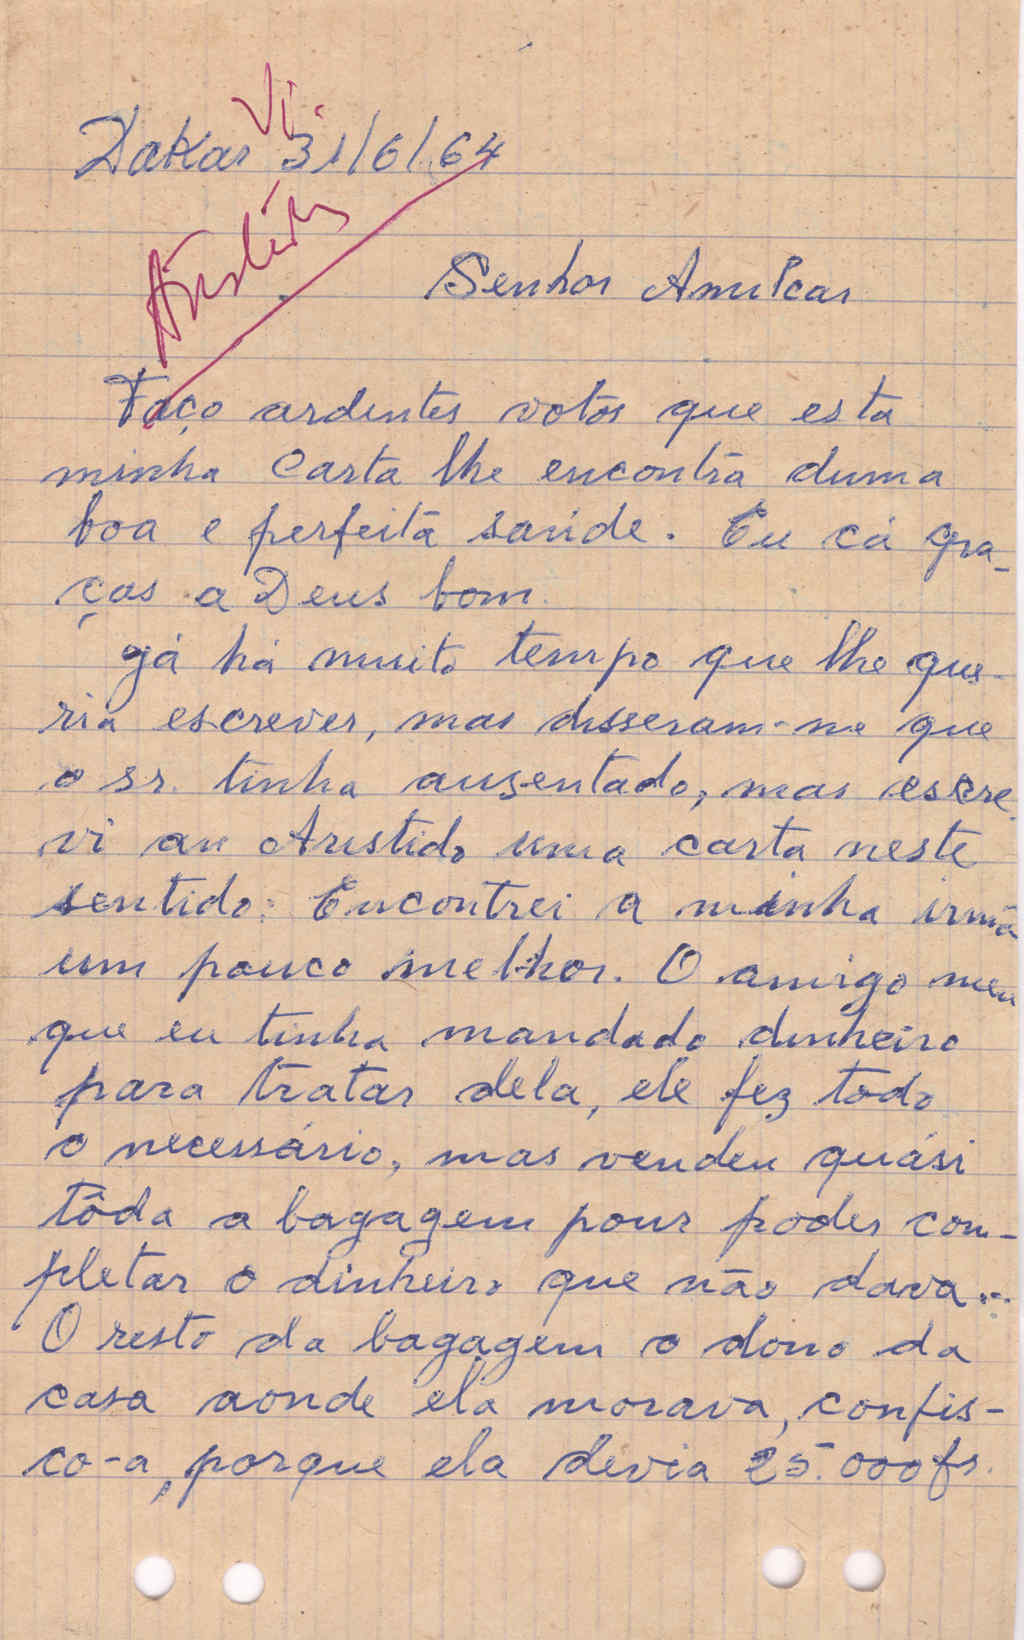 Vi.
Dakar 31/6/64
Aristides
Senhor Amilcar
Faço ardentes votos que esta
minha carta lhe encontra duma
boa e perfeita saúde. Eu cá gra-
ças a Deus bom.
Já há muito tempo que lhe que-
ria escrever, mas disseram-me que
o sr. tinha ausentado, mas escre-
vi au Aristido uma carta neste
sentido: Encontrei a minha irmã
um pouco melhor. O amigo meu
que eu tinha mandado dinheiro
para tratar dela, ele fez todo
o necessário, mas vendeu quási
tôda a bagagem pour poder com-
pletar o dinheiro que não dava...
O resto da bagagem o dono da
casa aonde ela morava, confis-
co-a, porque ela devia 25.000 fs.